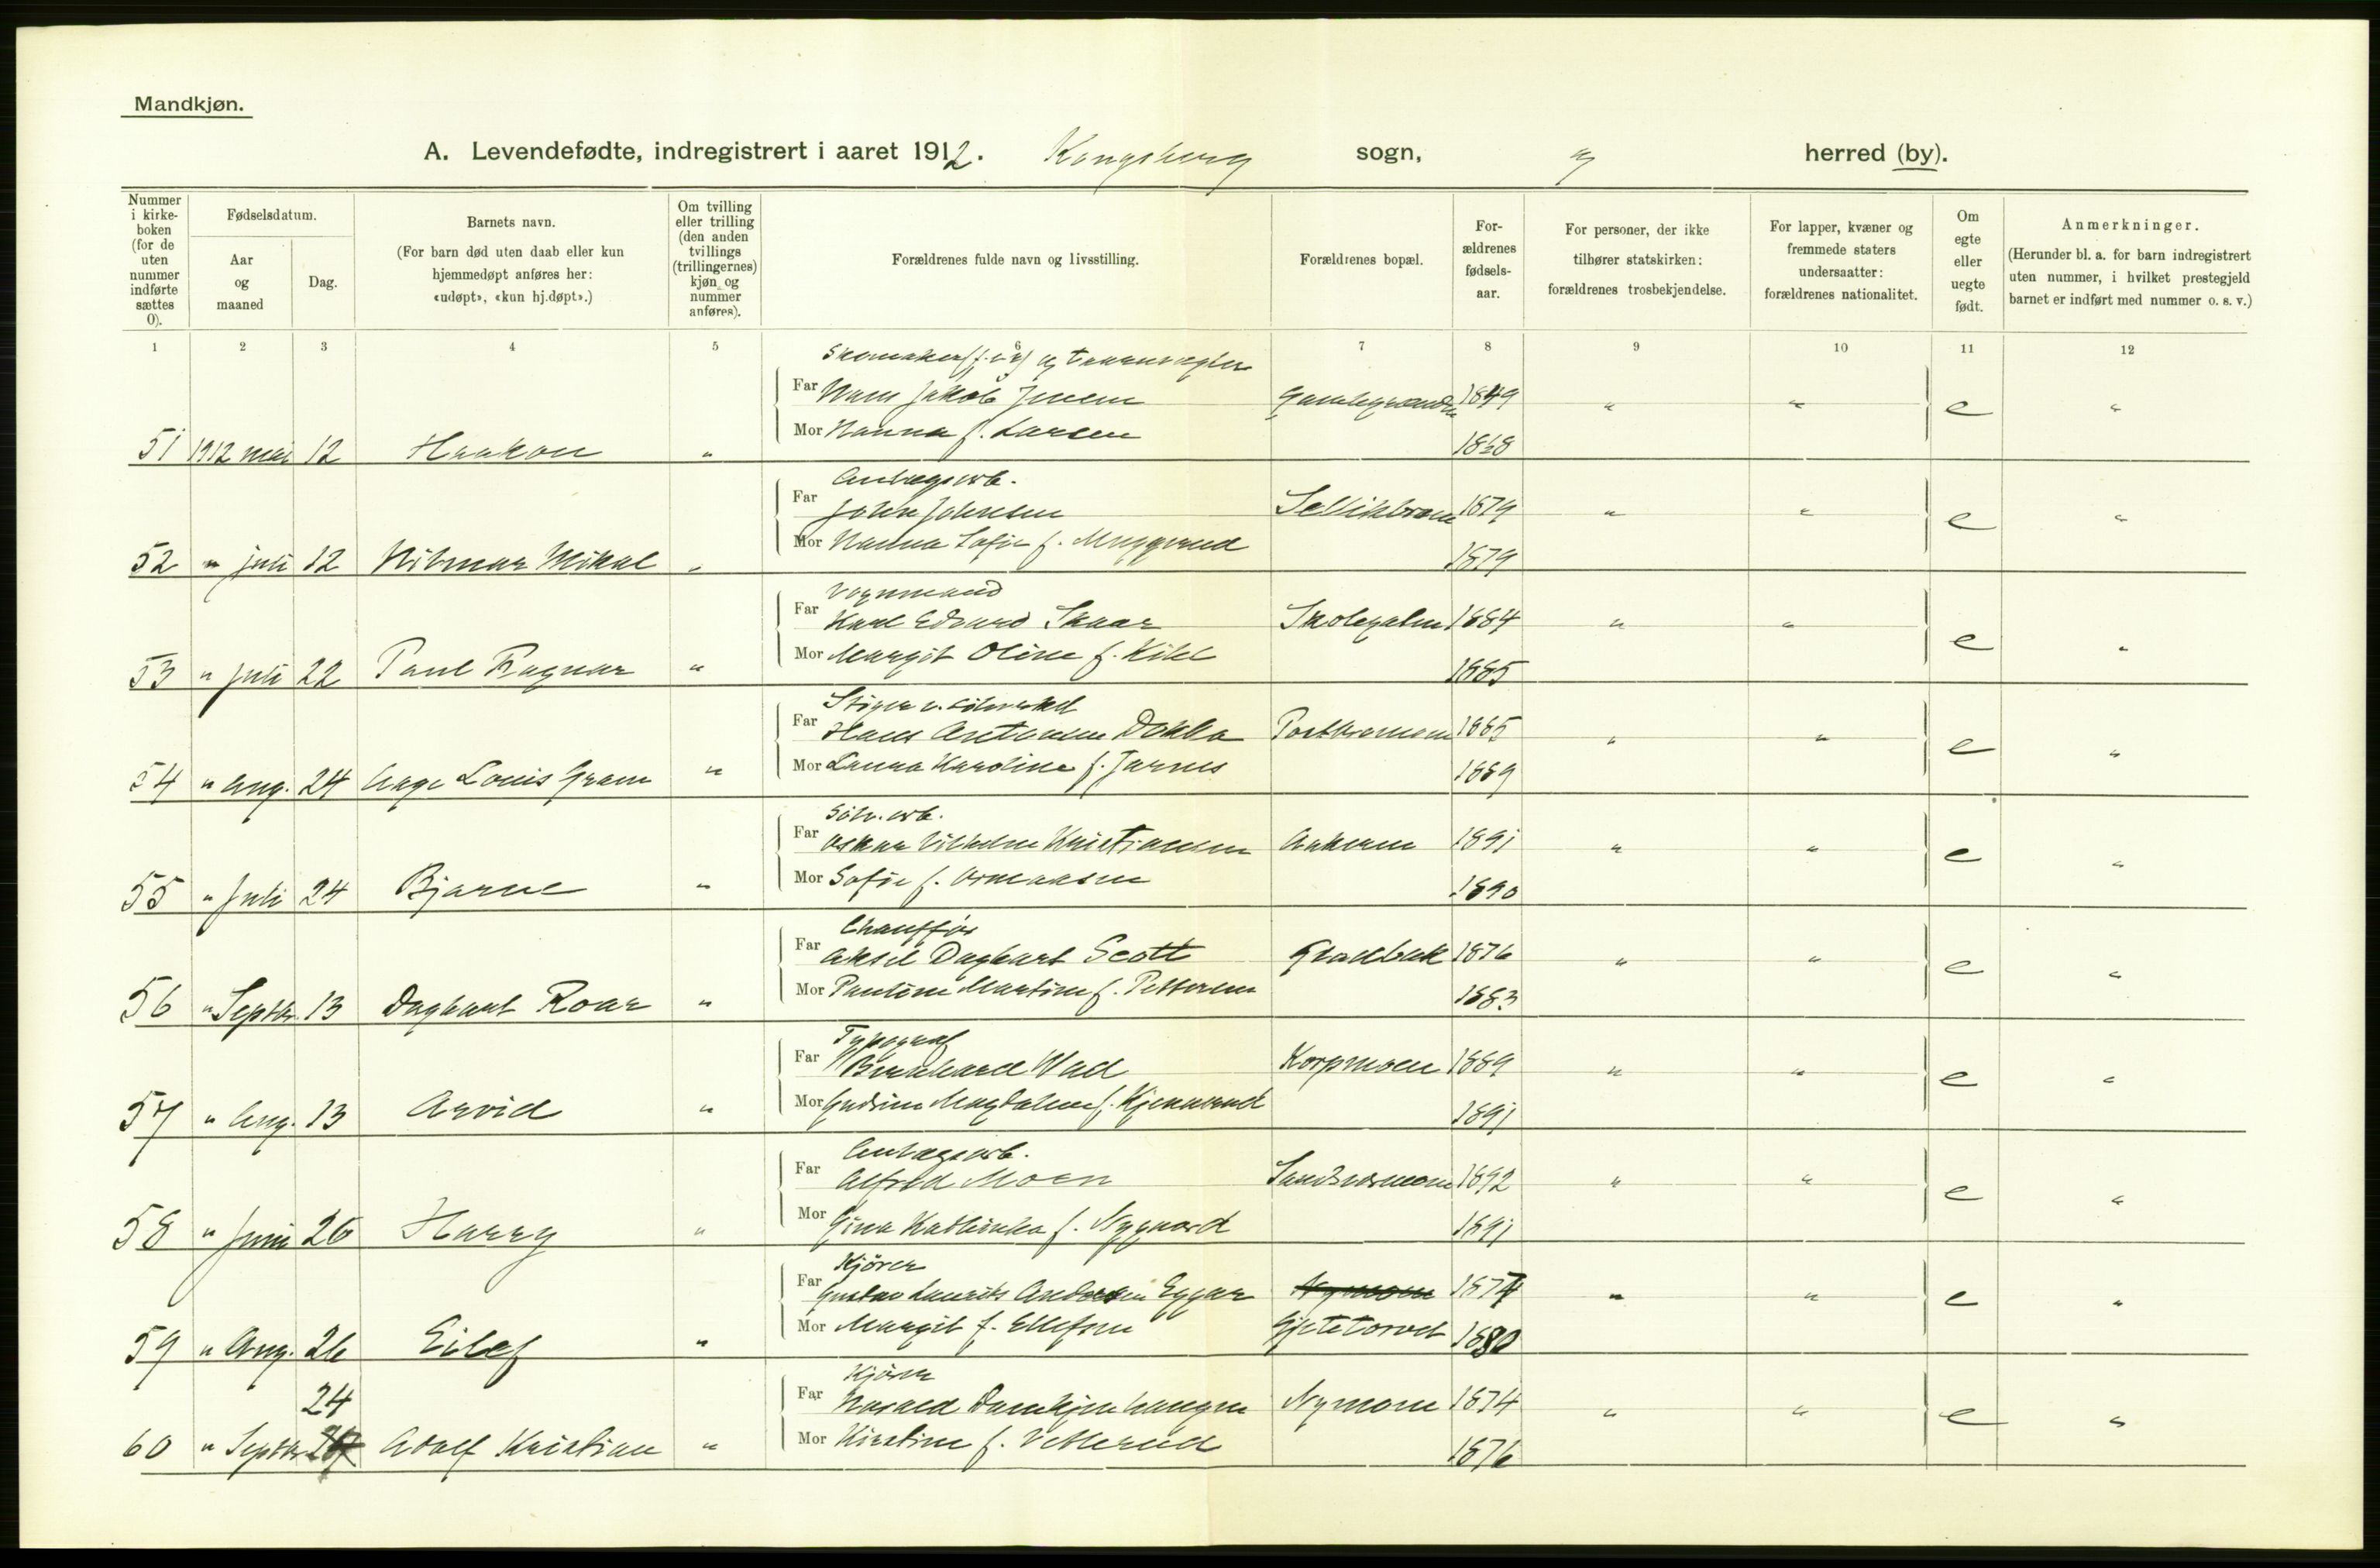 Mandkjøn.
A. Levendefødte, indregistrert i aaret 1912. Kongsberg sogn, og herred (by).
Nummer i kirke-boken (for de uten nummer indførte sættes 0).
Fødselsdatum.
Aar og maaned
Dag.
Barnets navn.
(For barn død uten daab eller kun hjemmedøpt anføres her: «udøpt», «kun hj.døpt».)
Om tvilling eller trilling (den anden tvillings (trillingernes) kjøn og nummer anføres).
Forældrenes fulde navn og livsstilling.
Forældrenes bopæl.
For-ældrenes fødsels-aar.
For personer, der ikke tilhører statskirken: forældrenes trosbekjendelse.
For lapper, kvæner og fremmede staters undersaatter: forældrenes nationalitet.
Om egte eller uegte født.
Anmerkninger.
(Herunder bl. a. for barn indregistrert uten nummer, i hvilket prestegjeld barnet er indført med nummer o. s. v.)
1 2 3 4 5 6 7 8 9 10 11 12
Far Hans Jakob Jensen 1849 " " e "
Mor Hanna f. Larsen 1868
51 1912 mai 12 Haakon "
Anlægsarb.
Far John Johnsen 1879 " " e "
Mor Hanna Sofie f. Muggerud 1879
52 " juli 12 Hilmar Mikal "
Vognmand
Far Karl Edvard Skaar Skolegaten 1884 " " e "
Mor Margit Oline f. Kihl 1885
53 " juli 22 Paul Ragnar "
Stiger v. sølvverket
Far Hans Antonsen Dokka 1885 " " e "
Mor Laura Karoline f. Jarnes 1889
54 " Aug. 24 Aage Louis Gram "
Sølv. arb.
Far Oskar Vilhelm Kristiansen 1891 " " e "
Mor Sofie f. Ormaasen 1890
55 " Juli 24 Bjarne "
Chauffør
Far Aksel Dagbart Scott 1876 " " e "
Mor Pauline Martine f. Pettersen 1883
56 " Septbr. 13 Dagbart Roar "
Typograf
Far Bernhard Wad Korpmoen 1889 " " e "
Mor Gudrun Magdalene f. Kjennerud 1891
57 " Aug. 13 Arvid "
Anlægsarb.
Far Alfred Moen Sandsværmoen 1892 " " e "
Mor Gina Kathinka f. Nygaard 1891
58 " Juni 26 Harry "
Kjører
Far Gustav Laurits Andersen Eggar Nymoen 1874 " " e "
Mor Margit f. Ellefsen Gjetetorvet 1880
59 " Aug. 26 Eilef "
Kjører
Far Harald Damhjenhaugen Nymoen 1874 " " e "
Mor Kirstine f. Vetterud 1876
24
60 " Septbr. Adolf Kristian "